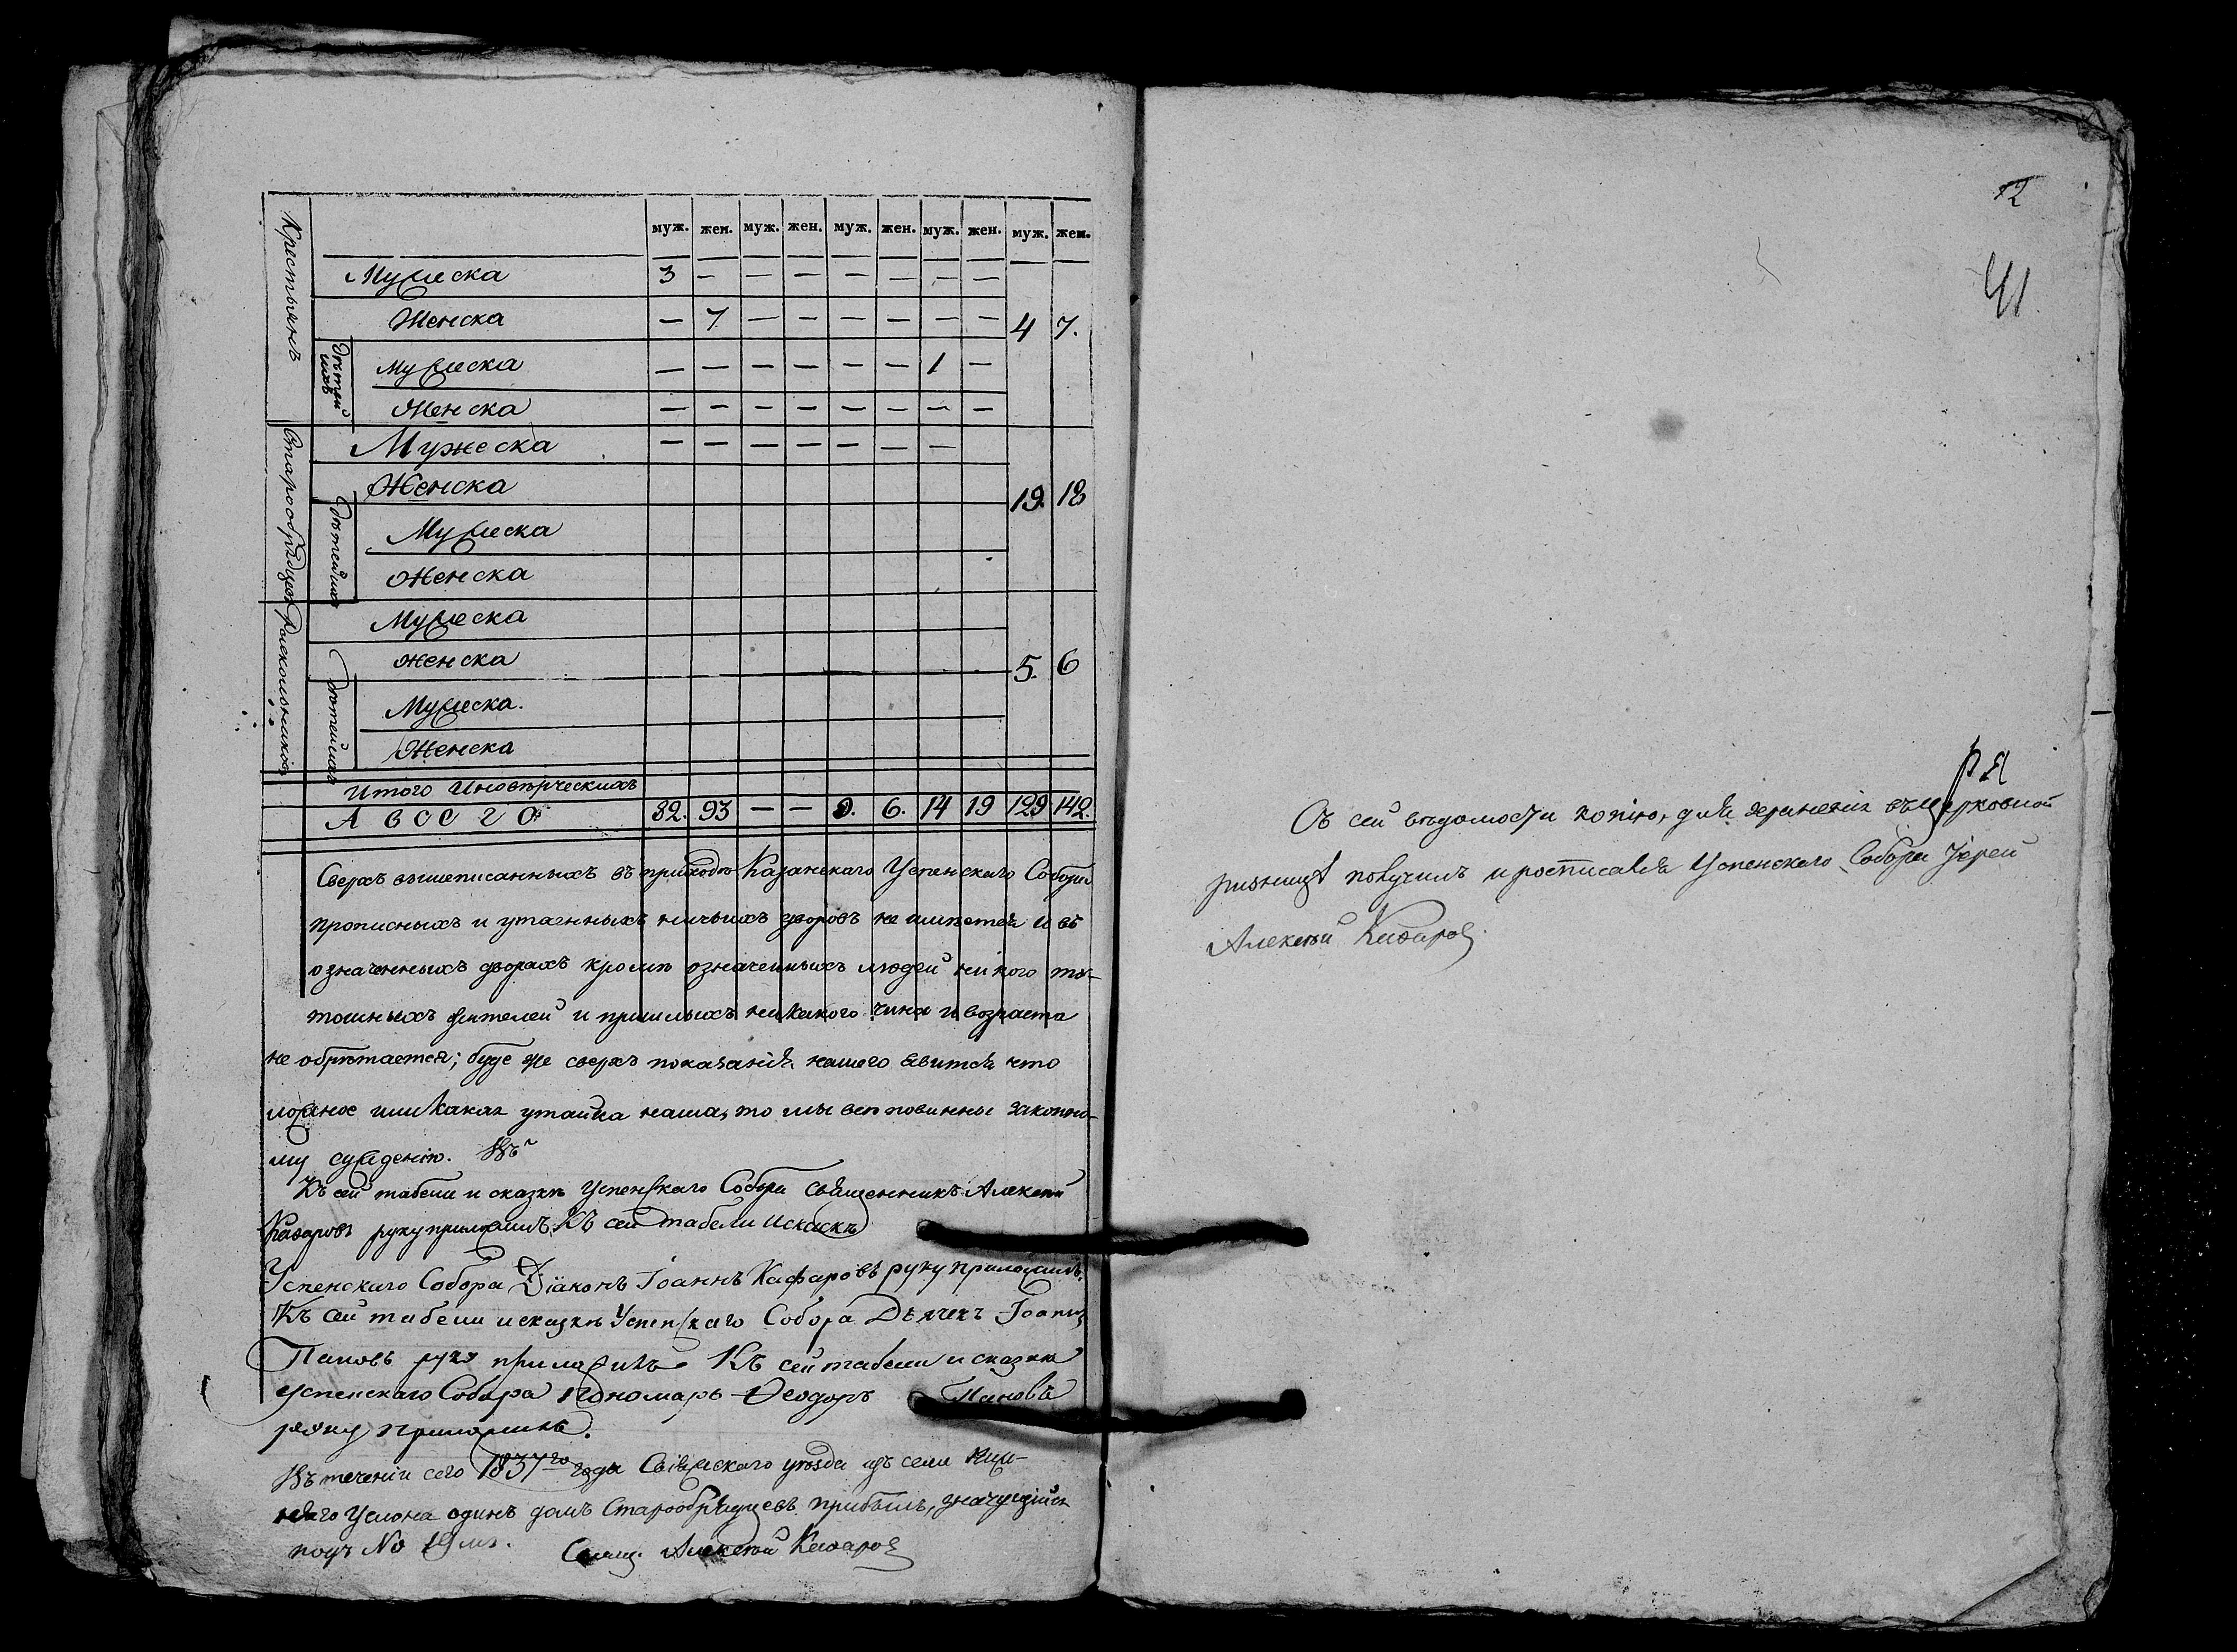 муж. жен. муж. жен. муж. жен. муж. жен. муж. жен.
Крестьянъ
Мужеска 3 — — — — — — —
Женска — 7 — — — — — — 4 7.
Дѣтей ихъ
Мужеска — — — — — — 1 —
Женска — — — — — — — —
Старообрядцевъ
Мужеска — — — — — — —
Женска 19. 18
Дѣтей ихъ
Мужеска
Женска
Раскольниковъ
Мужеска
Женска 5. 6
Дѣтей ихъ
Мужеска.
Женска
Итого Иновѣрческихъ
А ВСЕГО 82. 93 — — 6. 14 19 129 142.
Сверхъ вышеписанныхъ въ приходѣ Казанскаго Успенскаго Собора
прописныхъ и утаенныхъ ничьихъ дворовъ не имѣется и въ
означенныхъ дворахъ кромѣ означенныхъ людей никого ту-
тошныхъ жителей и пришлыхъ никакого чина и возраста
не обрѣтается; буде же сверхъ показанія нашего явится что
ложное или какая утайка наша, то мы всѣ повинны законно-
му сужденію.
Къ сей табели и сказкѣ Успенскаго Собора Священникъ Алексѣй
Каѳаровъ руку приложилъ. Къ сей табели и скаскѣ
Успенскаго Собора Діаконъ Іоаннъ Кафаровъ руку приложилъ.
Къ сей табели и сказкѣ Успенскаго Собора Дьячекъ Іоаннъ
Пановъ руку приложилъ. Къ сей табели и сказкѣ
Успенскаго Собора пономарь Ѳеодоръ Пановъ
руку приложилъ.
Въ теченіи сего 1837го года Свіяжскаго уѣзда изъ села Ниж-
няго Услона одинъ домъ Старообрядцевъ прибылъ, значущійся
подъ No 19мъ. Свящ. Алексѣй Каѳаровъ
12
41.
Съ сей вѣдомости копію, для храненія въ церковной
ризницѣ получилъ и росписался Успенскаго Собора Іерей
Алексѣй Каѳаровъ.